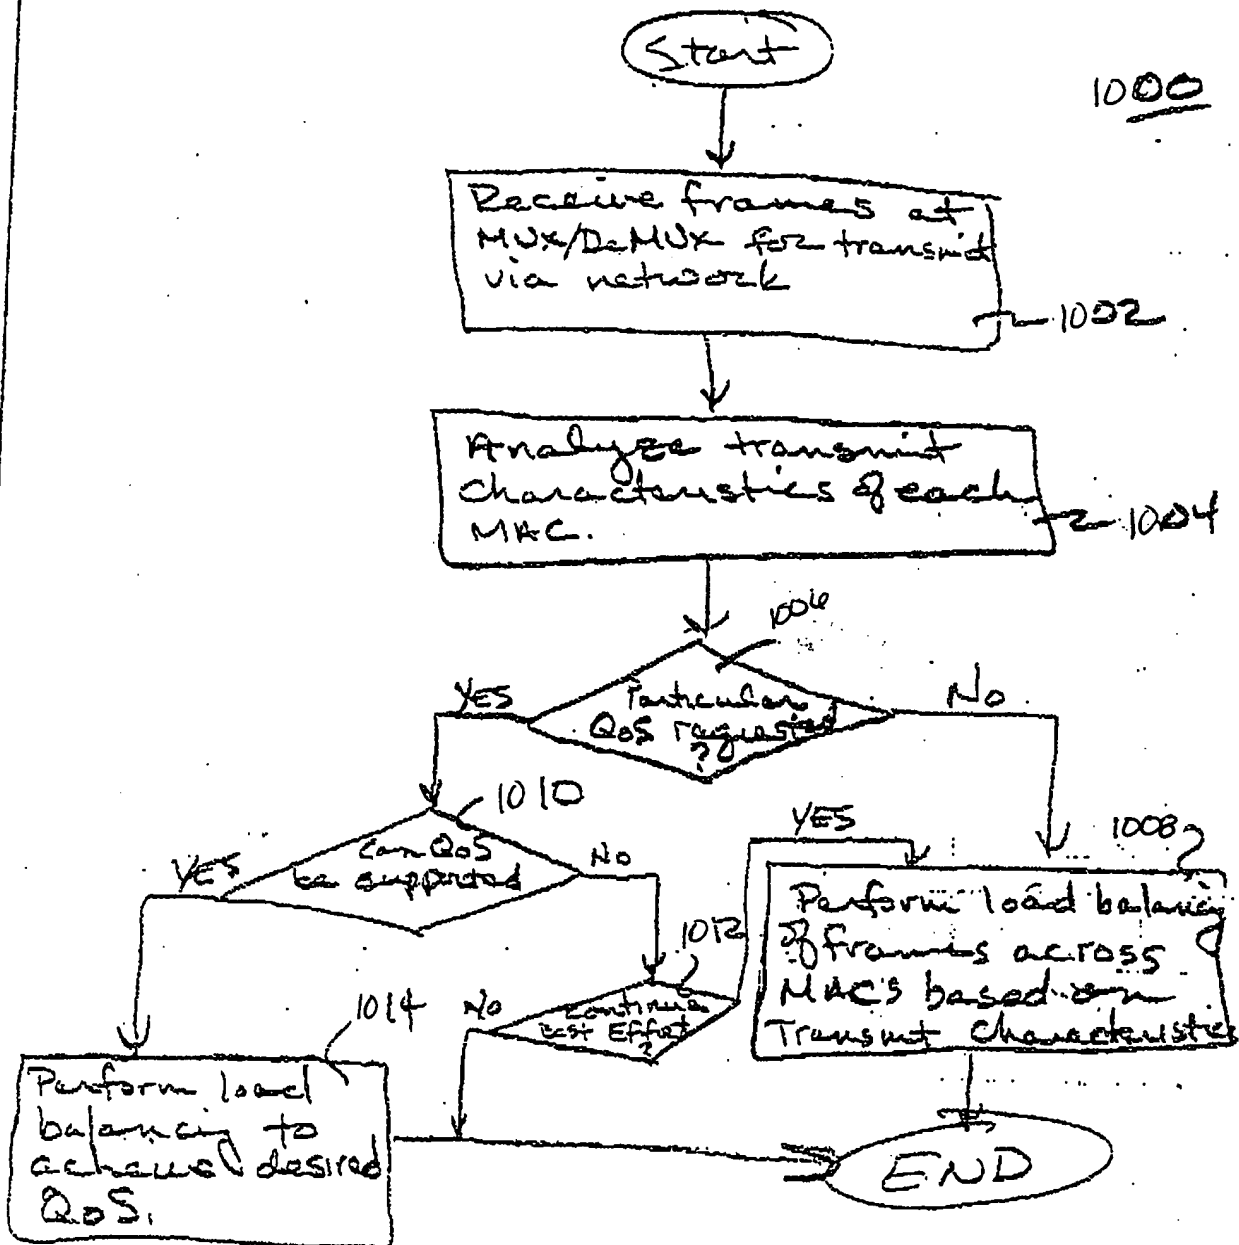 Start
1000
Receive frames at
MUX/DeMUX for transmit
via network
1002
Analyze transmit
characteristics of each
MAC.
1004
1006
YES
Particular
QoS requested
?
No
1010
Can QoS
be supported
YES
No
YES
1008
Perform load balancing
of frames across
MACs based on
Transmit Characteristics
1012
No
Continue
Best Effort
?
1014
Perform load
balancing to
achieve desired
QoS.
END